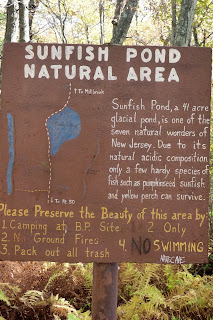 SUNFISH POND
NATURAL AREA
To Millbrook
Sunfish Pond, a 41 acre
glacial pond, is one of the
seven natural wonders of
New Jersey. Due to its
natural acidic composition
only a few hardy species of
fish such as pumpkinseed sunfish
and yellow perch can survive.
To Rt. 80
Please Preserve the Beauty of this area by:
1. Camping at B.P. Site
2 Only
2. No Ground Fires
4. NO SWIMMING
3. Pack out all trash